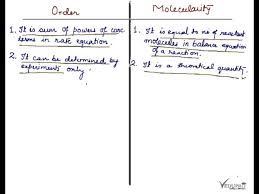 Order
Molecularity
1. It is sum of powers of conc
terms in rate equation.
2. It can be determined by
experiments only
1. It is equal to no of reactant
molecules in balance equation
of a reaction.
2. It is a theoritical quantity.